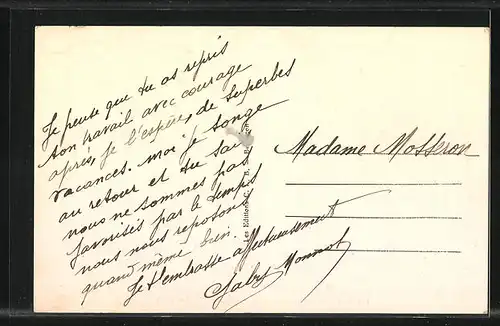 Je pense que tu as repris
ton travail avec courage
après, je l'espère, de superbes
vacances. moi je songe
au retour et tu sais
nous ne sommes pas
favorisés par le temps
nous nous reposons
quand même bien.
Je t'embrasse affectueusement
Gaby Monnot
Madame Mosseron
Les Editions C. A. P.